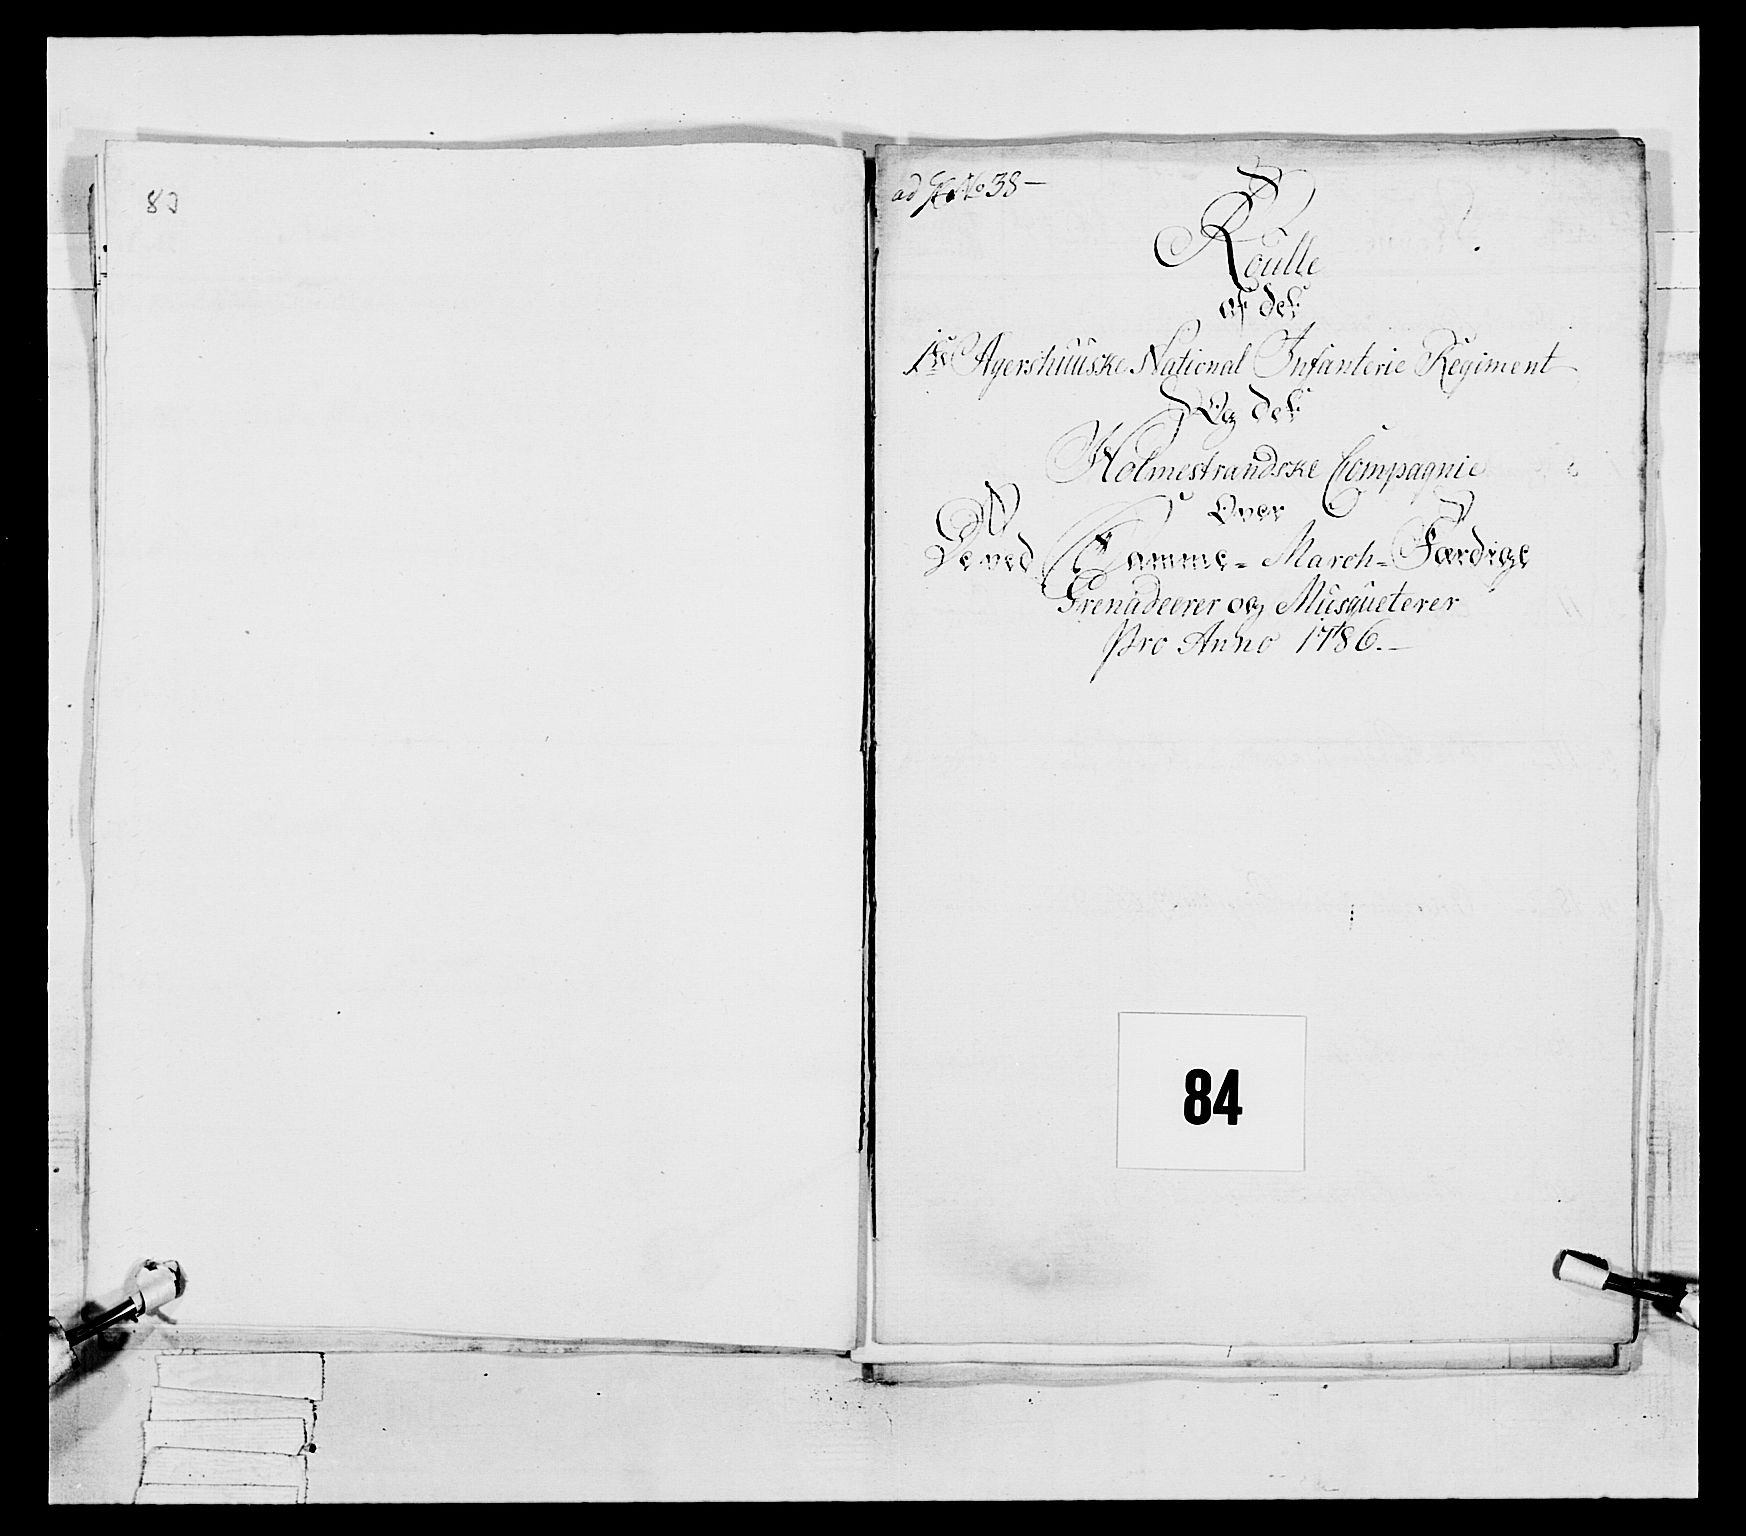 83
ad No 38 —
Roulle
af det
1ste Agershuuske National Infanterie Regiment
Og det
Holmestrandske Compagnie
Over
De ved Samme = March = Færdige
Grenadeerer og Musqueterer
Pro Anno 1786. —
84